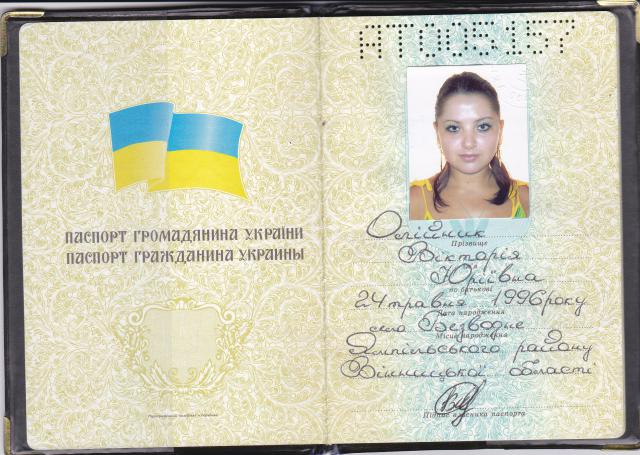 АТ005157
ПАСПОРТ ГРОМАДЯНИНА УКРАЇНИ
ПАСПОРТ ГРАЖДАНИНА УКРАИНЫ
Олійник
Прізвище
Вікторія
Юріївна
по батькові
24 травня 1996 року
Дата народження
село Безводне
Місце народження
Ямпільського району
Вінницької області
Підпис власника паспорта